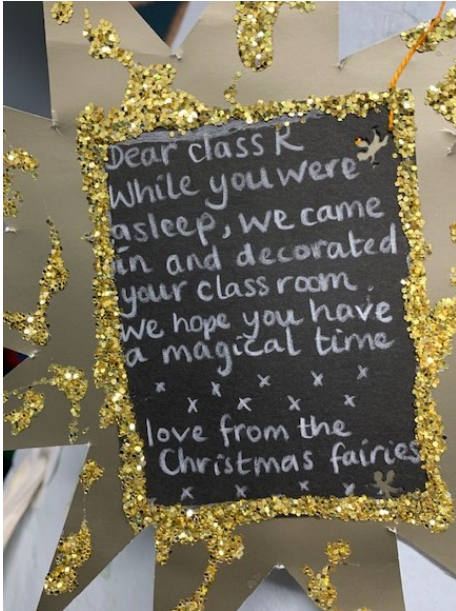 Dear class R
While you were
asleep, we came
in and decorated
your class room.
We hope you have
a magical time
x x x x x
x x x x
love from the
Christmas fairies
x x x x